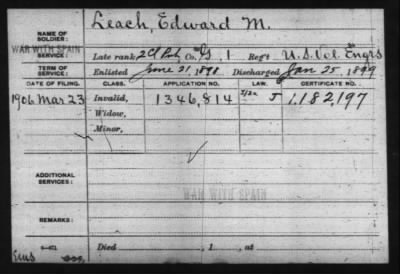 NAME OF SOLDIER: Leach, Edward M.
WAR WITH SPAIN
Late rank, 2 Cl Pvt, Co. G, 1 Reg't U.S. Vol. Engrs
TERM OF SERVICE: Enlisted June 21, 1898 Discharged Jan 25, 1899
DATE OF FILING. CLASS. APPLICATION NO. LAW. CERTIFICATE NO.
1906 Mar 23 Invalid, 1346,814 J 1,182,197
Widow,
Minor,
ADDITIONAL SERVICES:
WAR WITH SPAIN
REMARKS:
Died , 1 , at